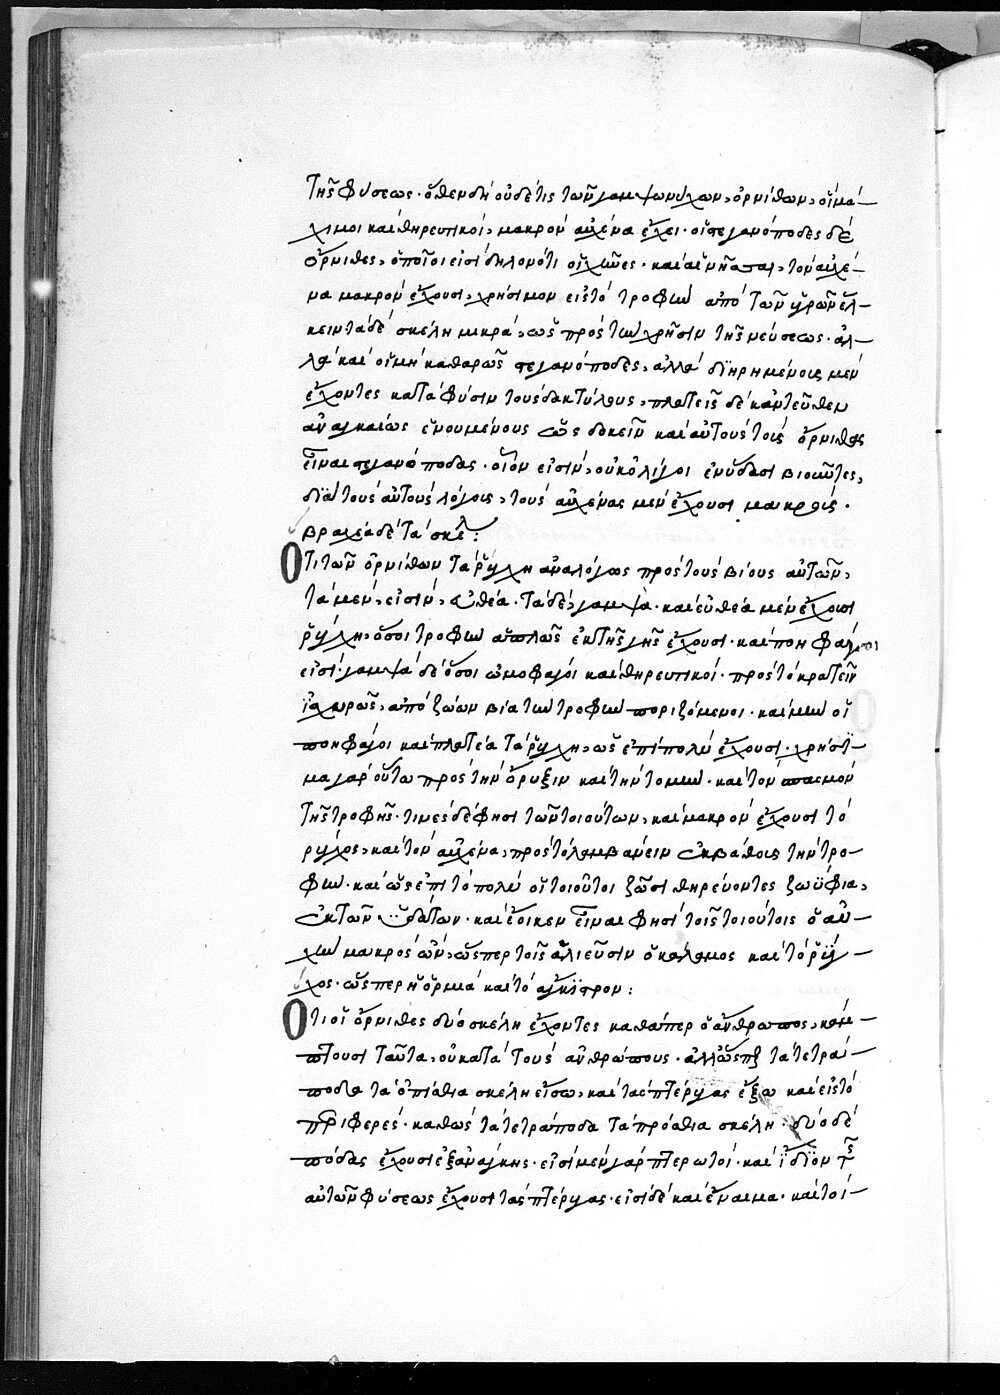 τῆς φύσεως· ὅθεν δὴ οὐδέ τις τῶν γαμψωνύχων, ὀρνίθων, οἳ μά-
χιμοι καὶ θηρευτικοί, μακρὸν αὐχένα ἔχει· οἱ στεγανόποδες δὲ
ὄρνιθες, ὁποῖοι εἰσὶ δηλονότι οἱ χῆνες· καὶ αἱ νῆσσαι, τὸν αὐχέ-
να μακρὸν ἔχουσι, χρήσιμον εἰς τὸ τροφὴν ἀπὸ τῶν ὑγρῶν ἕλ-
κειν τὰ δὲ σκέλη μικρὰ, ὡς πρὸς τὴν χρῆσιν τῆς νεύσεως· ἀλ-
λὰ καὶ οἱ μὴ καθαρῶς στεγανόποδες, ἀλλὰ διῃρημένοις μὲν
ἔχοντες κατὰ φύσιν τοὺς δακτύλους, πλατεῖς δὲ κἀντεῦθεν
ἀναγκαίως ἑνουμένους ὡς δοκεῖν καὶ αὐτοὺς τοὺς ὄρνιθας
εἶναι στεγανόποδας· οἷον εἰσὶν, οὐκ ὀλίγοι ἐν ὕδασι βιοῦντες,
διὰ τοὺς αὐτοὺς λόγους, τοὺς αὐχένας μὲν ἔχουσι μακροὺς·
βραχέα δὲ τὰ σκέλ:
Ὅτι τῶν ὀρνίθων τὰ ῥύγχη ἀναλόγως πρὸς τοὺς βίους αὐτῶν,
τὰ μὲν, εἰσὶν, εὐθέα· τὰ δὲ, γαμψὰ· καὶ εὐθέα μὲν ἔχουσι
ῥύγχη, ὅσοι τροφὴν ἁπλῶς ἐκ τῆς γῆς ἔχουσι· καὶ ποηφάγοι
εἰσί· γαμψὰ δὲ ὅσοι ὠμοφάγοι καὶ θηρευτικοί· πρὸς τὸ κρατεῖν
ἰσχυρῶς, ἀπὸ ζώων βίᾳ τὴν τροφὴν ποριζόμενοι· καὶ μὴν οἱ
ποηφάγοι καὶ πλατέα τὰ ῥύγχη, ὡς ἐπὶ πολὺ ἔχουσι· χρήσι-
μα γὰρ οὕτω πρὸς τὴν ὄρυξιν καὶ τὴν τομὴν· καὶ τὸν σπασμὸν
τῆς τροφῆς· τινὲς δέ φησι τῶν τοιούτων, καὶ μακρὸν ἔχουσι τὸ
ρύγχος, καὶ τὸν αὐχένα, πρὸς τὸ λαμβάνειν ἐκ βάθους τὴν τρο-
φὴν· καὶ ὡς ἐπὶ τὸ πολὺ οἱ τοιοῦτοι ζῶσι θηρεύοντες ζωΰφια,
ἐκ τῶν ὑδάτων· καὶ ἔοικεν εἶναι φησὶ τοῖς τοιούτοις ὁ αὐ-
χὴν μακρὸς ὢν, ὥσπερ τοῖς ἁλιεῦσιν ὁ κάλαμος καὶ τὸ ῥύγ-
χος· ὥσπερ ἡ ὁρμιὰ καὶ τὸ ἄγκιστρον:
Ὅτι οἱ ὄρνιθες δύο σκέλη ἔχοντες καθάπερ ὁ ἄνθρωπος, κάμ-
πτουσι ταῦτα, οὐ κατὰ τοὺς ἀνθρώπους· ἀλλ' ὥσπερ τὰ τετρά-
ποδα τὰ ὀπίσθια σκέλη εἴσω, καὶ τὰς πτέρυγας ἔξω καὶ εἰς τὸ
περιφερές· καθὼς τὰ τετράποδα τὰ πρόσθια σκέλη· δύο δὲ
πόδας ἔχουσι ἐξανάγκης· εἰσὶ μὲν γὰρ πτερωτοί· καὶ ἴδιον τῆς
αὐτῶν φύσεως ἔχουσι τὰς πτέρυγας· εἰσὶ δὲ καὶ ἔναιμα· καὶ τοί-